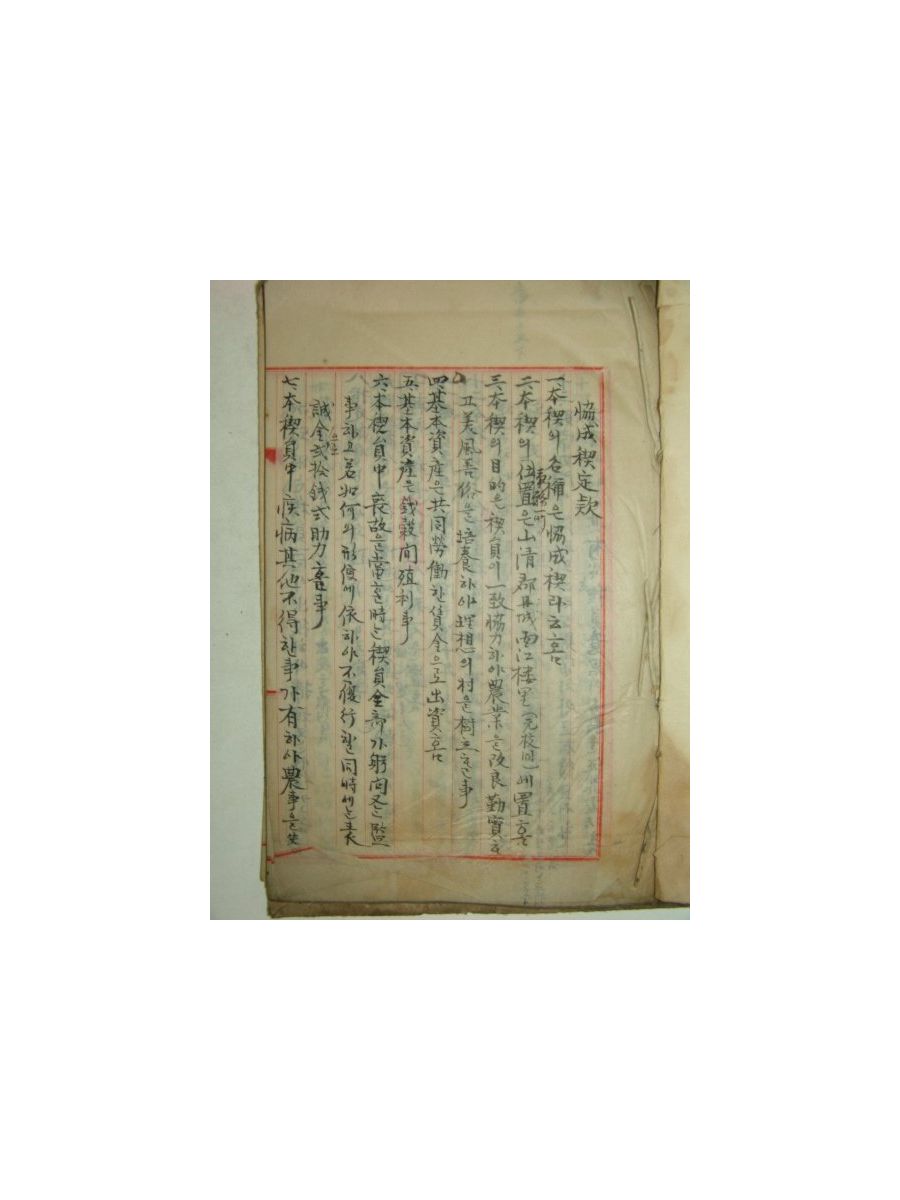 協成稧定款
一、本稧의 名稱은 協成稧라 云홈
二、本稧의 位置은 山清郡丹城面江樓里 에 置홈
事務所
三、本稧의 目的은 稧員이 一致協力하야 農業을 改良勤實하
고 美風善俗을 培養하야 理想의 村을 樹立할 事
四、基本資産은 共同勞働한 賃金으로 出資홈
五、基本資産은 錢穀間殖利事
六、本稧員中 喪故을 當한 時는 稧員全部가 躬問又는
事하고 若如何의 形便에 依하야 不履行할 同時에는 表
誠金으로 弍拾錢式 助力할 事
七、本稧員中 疾病其他不得한 事가 有하야 農事을 失